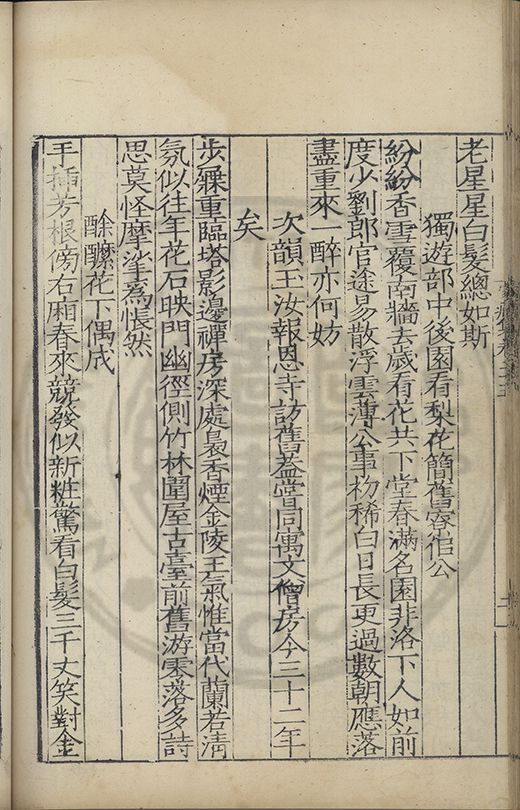 老星星白髮總如斯
獨遊部中後園看梨花簡舊寮佀公
紛紛香雪覆南牆去歲有花共下堂春滿名園非洛下人如前
度少劉郎官途易散浮雲薄公事杒稀白日長更過數朝應落
盡重來一醉亦何妨
次韻王汝報恩寺訪舊葢嘗同寓文僧房今三十二年
矣
步屧重臨塔影邊禪房深處裊香煙金陵王氣惟當代蘭若清
氛似往年花石映門幽徑側竹林圍屋古臺前舊游零落多詩
思莫怪摩挲爲悵然
酴醿花下偶成
手揷芳根傍右廂春來競發似新粧驚看白髮三千丈笑對金